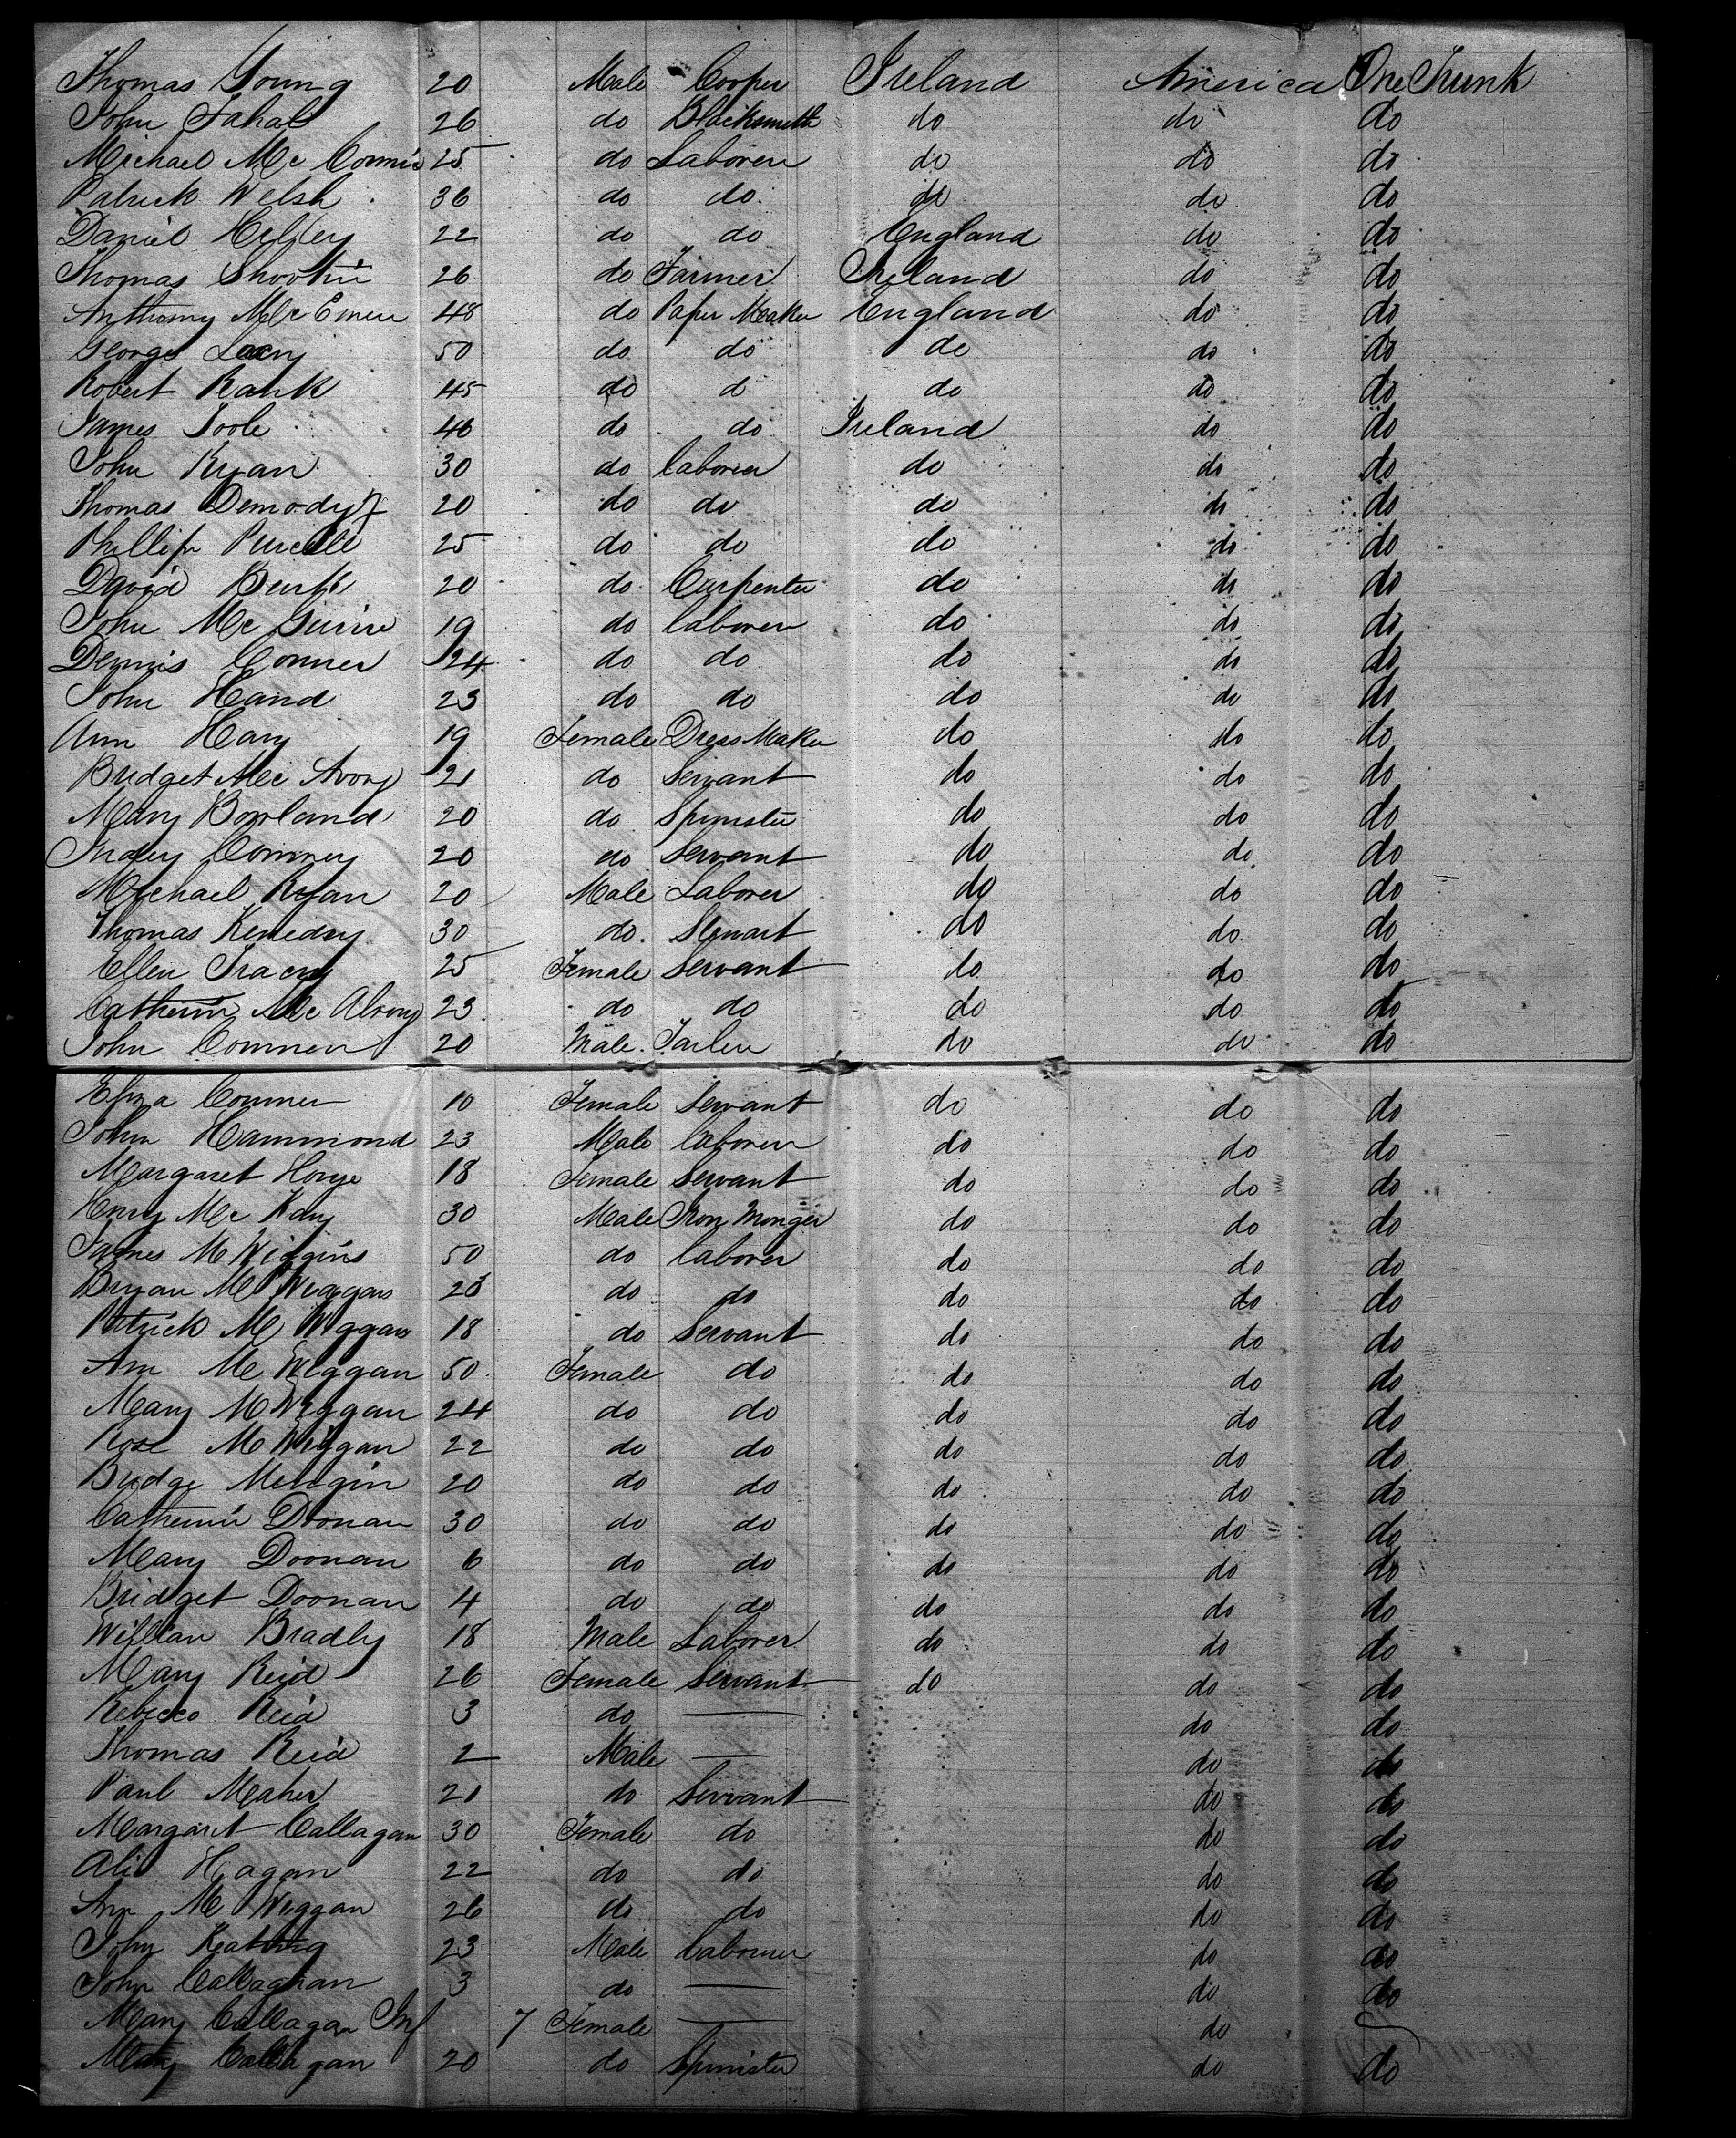 Thomas Young 20 Male Cooper Ireland America One Trunk
John Fahal 26 do Blacksmith do do do
Michael Mc Cormic 25 do Laborer do do do
Patrick Welsh 36 do do do do do
Daniel 22 do do England do do
Thomas 26 do Farmer Ireland do do
Anthony 48 do Paper Maker England do do
George 50 do do do do do
Robert Rank 45 do d do do do
James Toole 46 do do Ireland do do
John Ryan 30 do laborer do do do
Thomas Demody 20 do do do do do
Phillip Purcell 25 do do do do do
David Burk 20 do Carpenter do do do
John Mc 19 do laborer do do do
Dennis Conner 24 do do do do do
John Hand 23 do do do do do
Ann Hary 19 Female Dress Maker do do do
Bridget Mc Avory 21 do Servant do do do
Mary Borland 20 do Spinster do do do
Judey 20 do Servant do do do
Michael Ryan 20 Male Laborer do do do
Thomas Kenedey 30 do Stewart do do do
Ellen Tracey 25 Female Servant do do do
Catherin Mc 23 do do do do do
John Conner 20 Male do do do
Eliza Conner 10 Female Servant do do do
John Hammond 23 Male laborer do do do
Margaret 18 Female Servant do do do
Henry Mc Kay 30 Male Iron Monger do do do
James McWiggins 50 do laborer do do do
Bryan Mc Wiggan do do do do do
Patrick Mc Wiggan 18 do Servant do do do
Ann Mc Wiggan 50 Female do do do do
Mary McWiggan 24 do do do do do
Rose McWiggan 22 do do do do do
Bridge 20 do do do do do
Catherine Doonan 30 do do do do do
Mary Doonan 6 do do do do do
Bridget Doonan 4 do do do do do
Willian Bradly 18 Male Laborer do do do
Mary Reid 26 Female Servant do do do
Rebecco Reid 3 do — do do
Thomas Reid 2 Male — do do
Paul Maher 21 do Servant do do
Margaret Callagan 30 Female do do do
Hagan 22 do do do do
Ann Mc Wiggan 26 do do do do
John Keating 23 Male do do
John Callaghan 3 do — do do
Mary Callagan Inf 7 Female — do
Mary Callagan 20 do Spinster do do